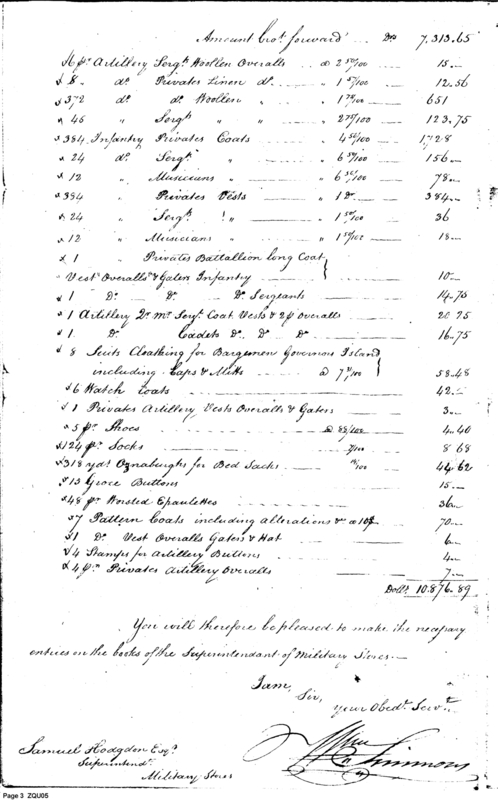 Amount bro.t forward Drs 7,313.65
x 6 pr Artillery Sergts Woollen Overalls a 2 50/100 15..
x 8 do Privates Linen do 1 57/100 12.56
x 372 do do Woollen " " 1 75/100 651
x 45 " Sergts " " 2 75/100 123,75
x 384 Infantry Privates Coats " 4 50/100 1,728
x 24 do Sergts " " 6 50/100 156..
x 12 " Musicians " " 6 50/100 78..
x 384 " Privates Vests " 1 Dr 384..
x 24 " Sergts " " 1 50/100 36
x 12 " Musicians " " 1 50/100 18..
x 1 " Privates Battallion long Coat
" Vest Overalls & Gaters Infantry 10..
x 1 Do Do Do Sergeants 14.75
x 1 Artillery Qr Mr Sergt Coat Vests & 2 pr Overalls 20 75
x 1 Do Cadets Do Do Do 16.75
x 8 Suits Cloathing for Bargemen Governors Island
including Caps & Mitts a 7 31/100 58.48
x 6 Watch Coats 42..
x 1 Privates Artillery Vests Overalls & Gaters 3..
x 5 pr Shoes a 88/100 4.40
x 124 pr Socks 7/100 8 68
x 318 yds Oznaburghs for Bed Sacks 44.62
x 13 Groce Buttons 15..
x 48 pr Worsted Epaulettes 36..
x 7 Pattern Coats including alterations &c a 10$ 70..
x 1 Do Vest Overalls Gaters & Hat 6..
x 4 Stamps for Artillery Buttons 4..
x 4 pr Privates Artillery Overalls 7..
Dollrs 10.876.89
You will therefore be pleased to make the necessary
entries in the books of the Superintendant of Military Stores..
I am,
Sir,
your Obedt Servt
Wm Simmons
Samuel Hodgdon Esqr
Superintendt
Military Stores
Page 3 ZQU05